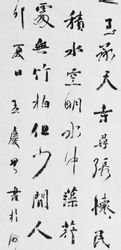 至承天寺尋張懷民
積水空明水中藻荇
處無竹柏但少閒人
夏日 慶 書於